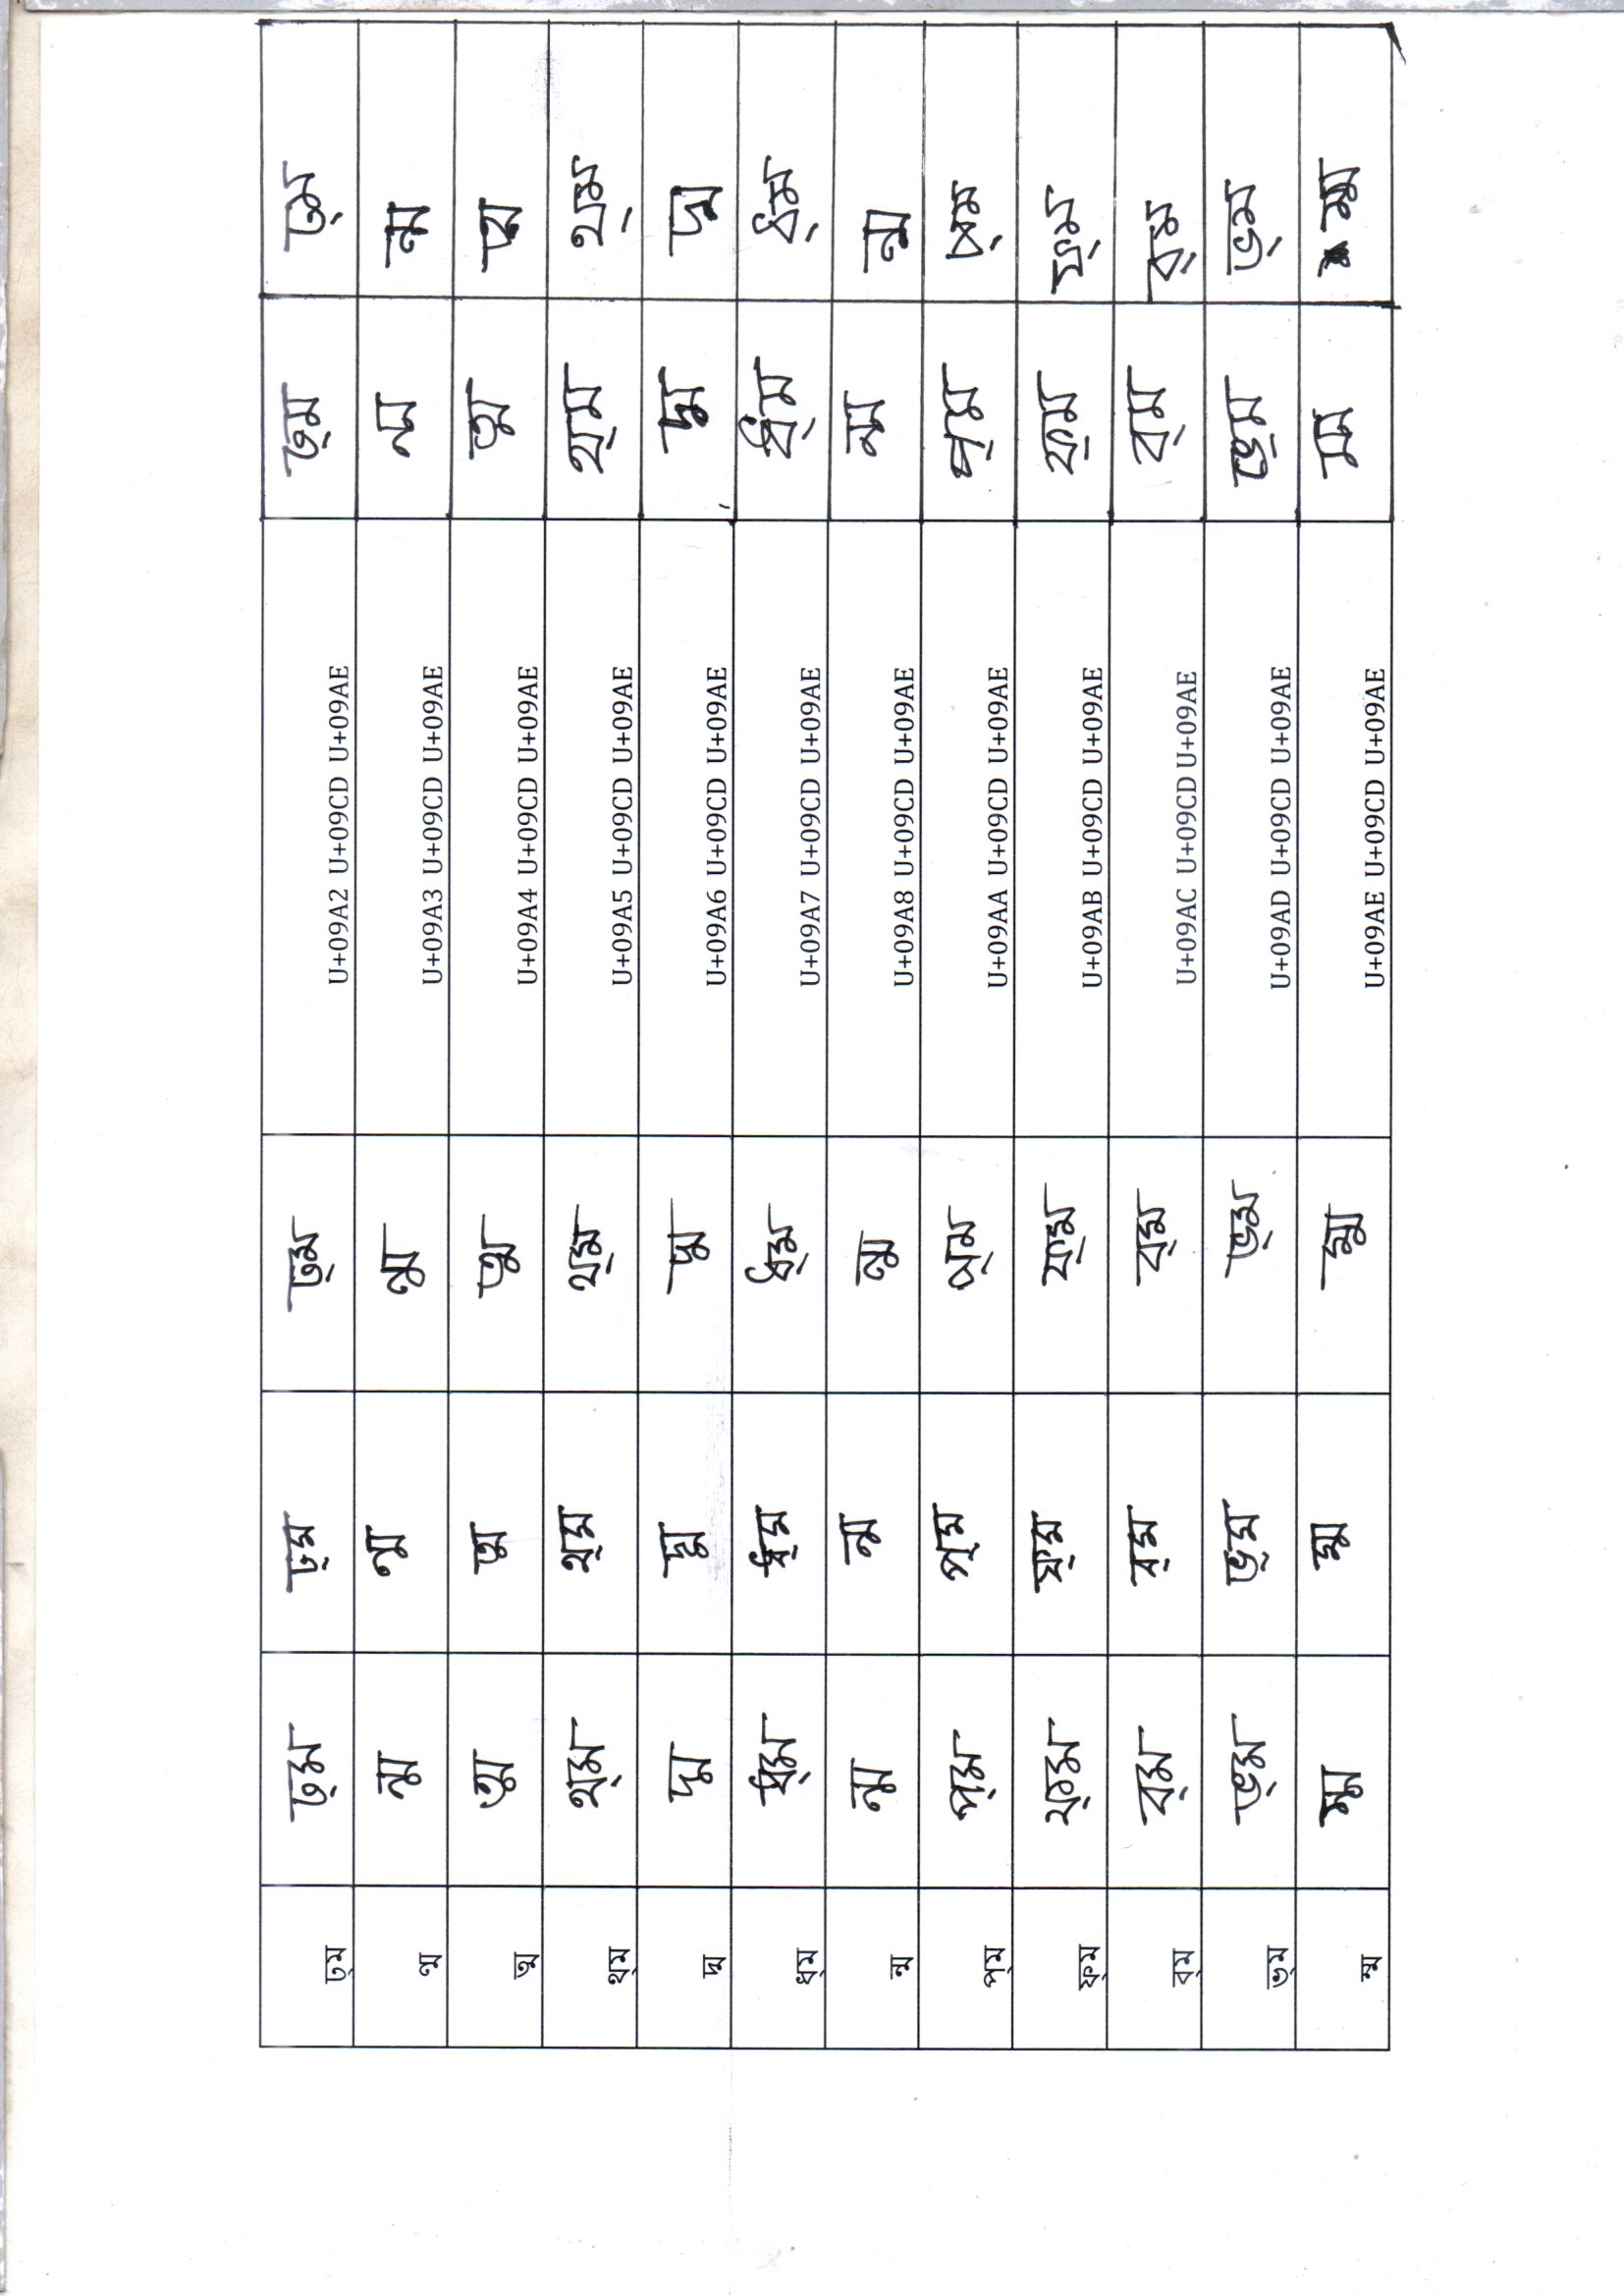 ঢ্ম ঢ্ম ঢ্ম ঢ্ম U+09A2 U+09CD U+09AE ঢ্ম ঢ্ম
ণ্ম ন্ম ন্ম ন্ম U+09A3 U+09CD U+09AE ন্ম ন্ম
ত্ম ত্ম ত্ম ত্ম U+09A4 U+09CD U+09AE ত্ম ত্ম
থ্ম থ্ম থ্ম থ্ম U+09A5 U+09CD U+09AE থ্ম থ্ম
দ্ম দ্ম দ্ম দ্ম U+09A6 U+09CD U+09AE দ্ম দ্ম
ধ্ম ধ্ম ধ্ম ধ্ম U+09A7 U+09CD U+09AE ধ্ম ধ্ম
ন্ম ন্ম ন্ম ন্ম U+09A8 U+09CD U+09AE ন্ম ন্ম
প্ম প্ম প্ম প্ম U+09AA U+09CD U+09AE প্ম প্ম
ফ্ম ফ্ম ফ্ম ফ্ম U+09AB U+09CD U+09AE ফ্ম ফ্ম
ব্ম ব্ম ব্ম ব্ম U+09AC U+09CD U+09AE ব্ম ব্ম
ভ্ম ভ্ম ভ্ম ভ্ম U+09AD U+09CD U+09AE ভ্ম ভ্ম
ম্ম ম্ম ম্ম ম্ম U+09AE U+09CD U+09AE ম্ম ম্ম